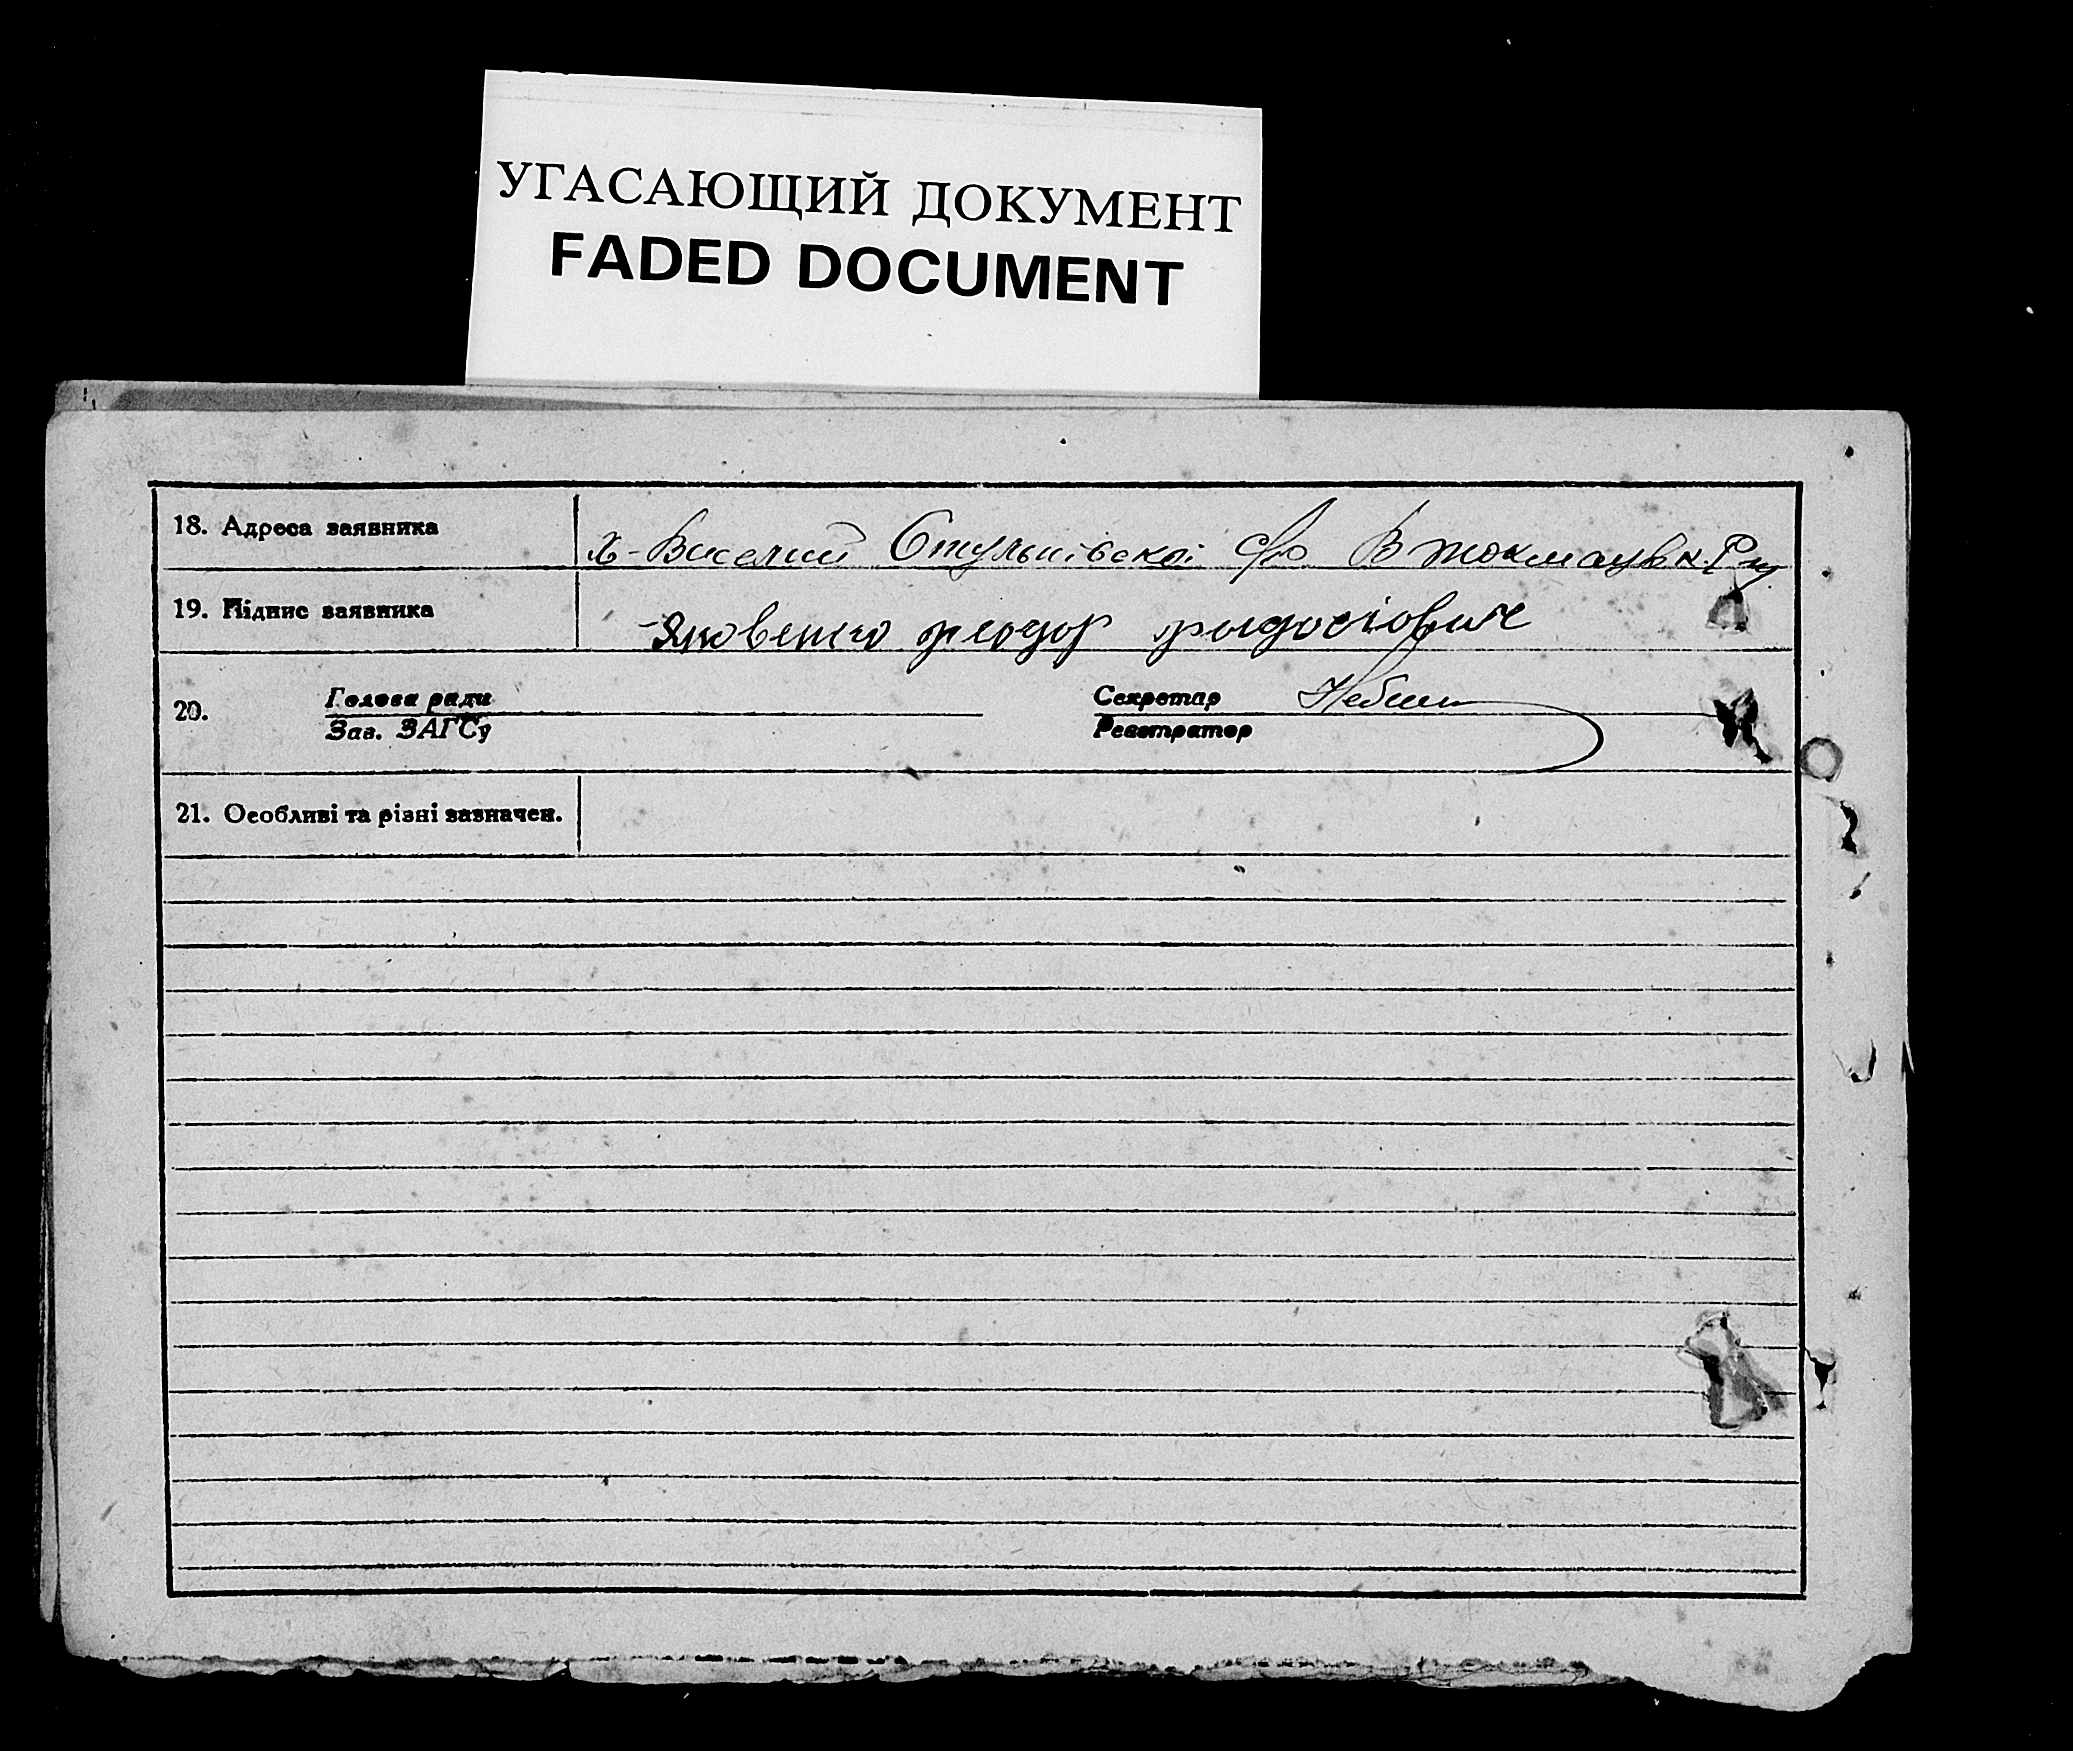 УГАСАЮЩИЙ ДОКУМЕНТ
FADED DOCUMENT
18. Адреса заявника х-Виселий Стульнівскої с/р В Токмацьк.
19. Підпис заявника Яковенко
20. Голова ради
Зав. ЗАГСу
Секретар
Реєстратор
21. Особливі та різні зазначен.